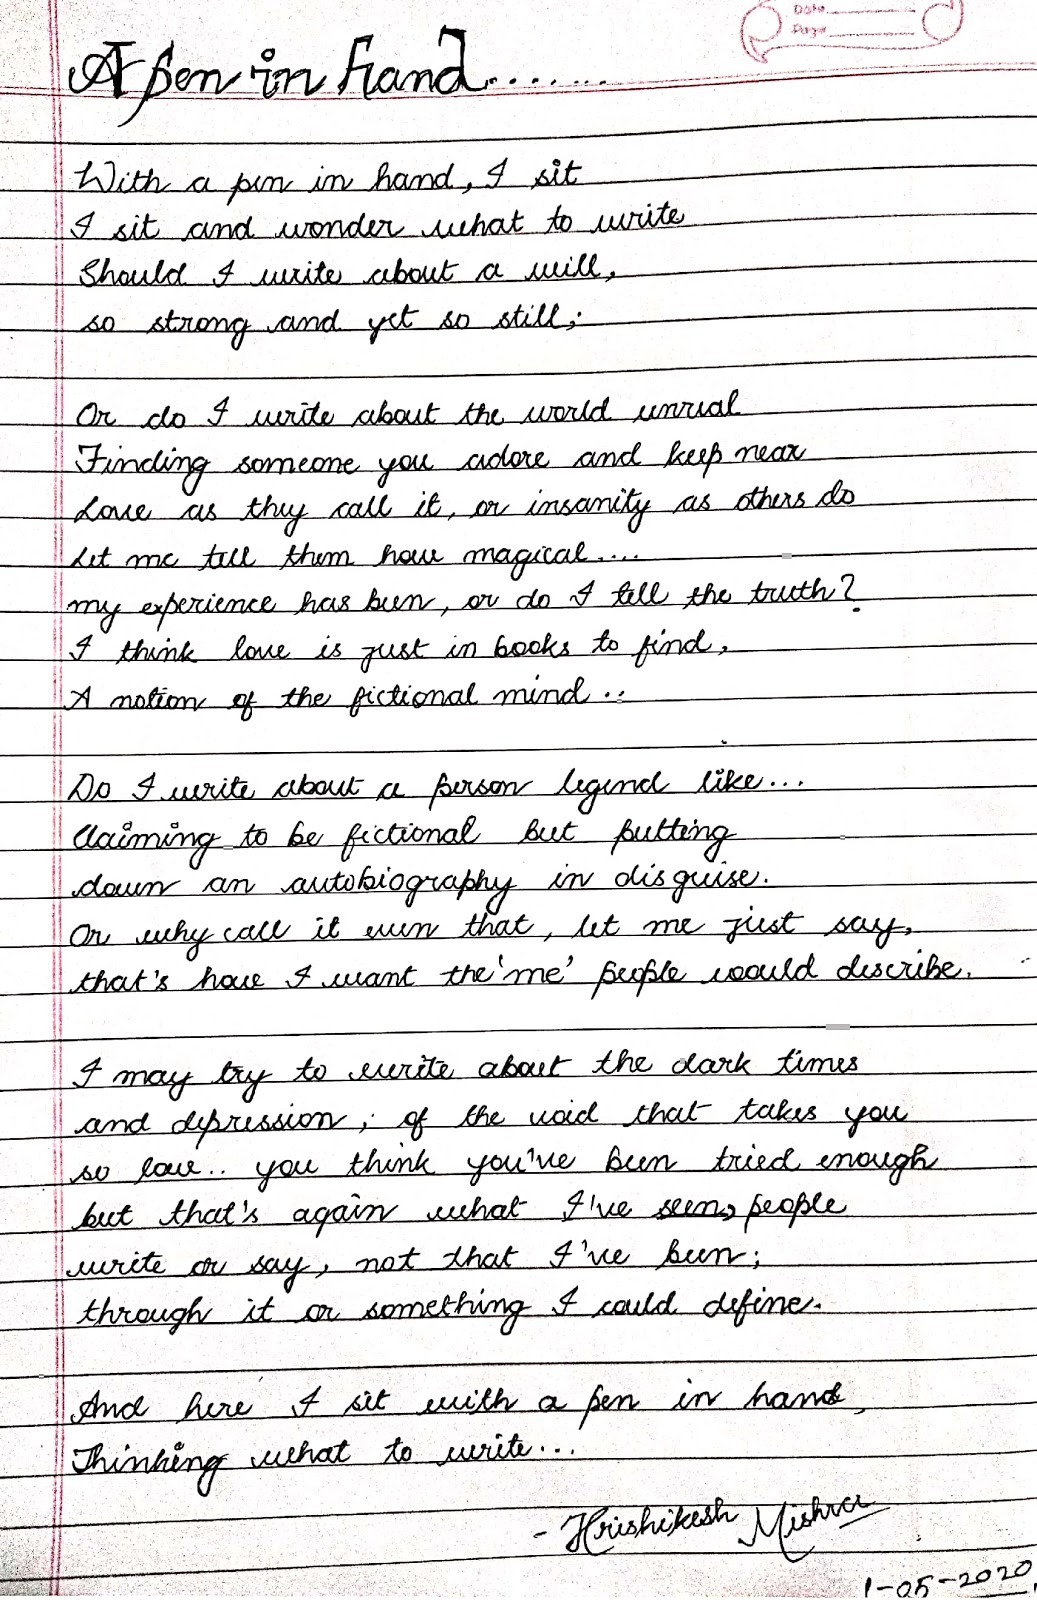 Date
Page
A pen in hand.......
With a pen in hand, I sit
I sit and wonder what to write
Should I write about a will,
so strong and yet so still;
Or do I write about the world unreal
Finding someone you adore and keep near
Love as they call it, or insanity as others do
Let me tell them how magical....
my experience has been, or do I tell the truth?
I think love is just in books to find,
A notion of the fictional mind..
Do I write about a person legend like...
Claiming to be fictional but putting
down an autobiography in disguise.
Or why call it even that, let me just say,
that's how I want the 'me' people would describe.
I may try to write about the dark times
and depression; of the void that takes you
so low.. you think you've been tried enough
but that's again what I've seen, people
write or say, not that I've been;
through it or something I could define.
And here I sit with a pen in hand,
Thinking what to write...
- Hrishikesh Mishra
1-05-2020